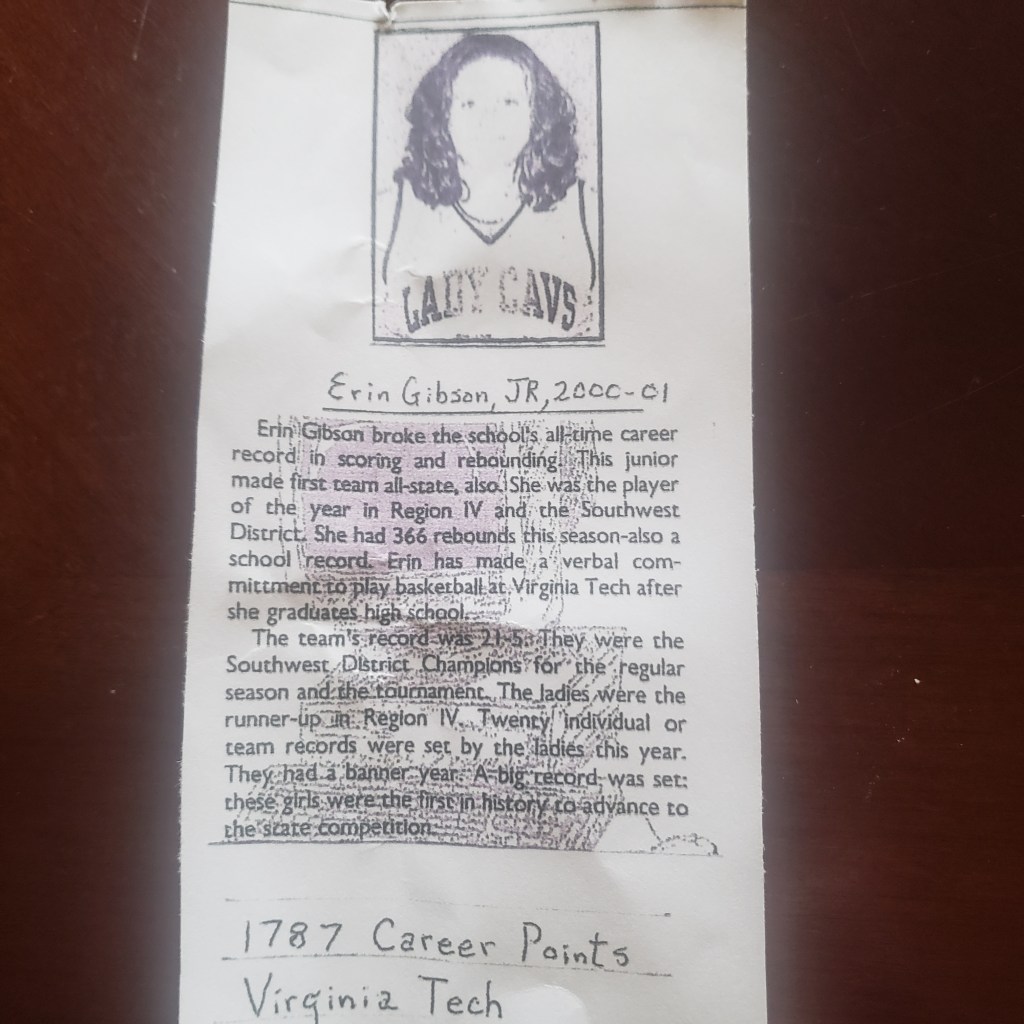 LADY CAVS
Erin Gibson, JR, 2000-01
Erin Gibson broke the school's all-time career
record in scoring and rebounding. This junior
made first team all-state, also. She was the player
of the year in Region IV and the Southwest
District. She had 366 rebounds this season-also a
school record. Erin has made a verbal com-
mittment to play basketball at Virginia Tech after
she graduates high school.
The team's record was 21-5. They were the
Southwest District Champions for the regular
season and the tournament. The ladies were the
runner-up in Region IV. Twenty individual or
team records were set by the ladies this year.
They had a banner year. A big record was set:
these girls were the first in history to advance to
the state competition.
1787 Career Points
Virginia Tech